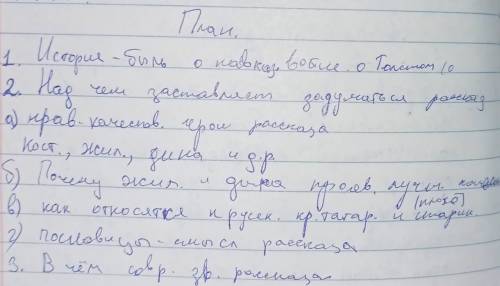 План.
1. История-быль о кавказ. войне. о Толстом
2. Над чем заставляет задуматься рассказ
а) нрав-качеств. герои рассказа
Кост., жил., дина и д.р
б) Почему жил. и дина прояв. лучш.
(плохо)
в) как относятся к русск. кр. татар. и старик.
г) пословицы-смысл рассказа
3. В чём совр. зв. рассказа